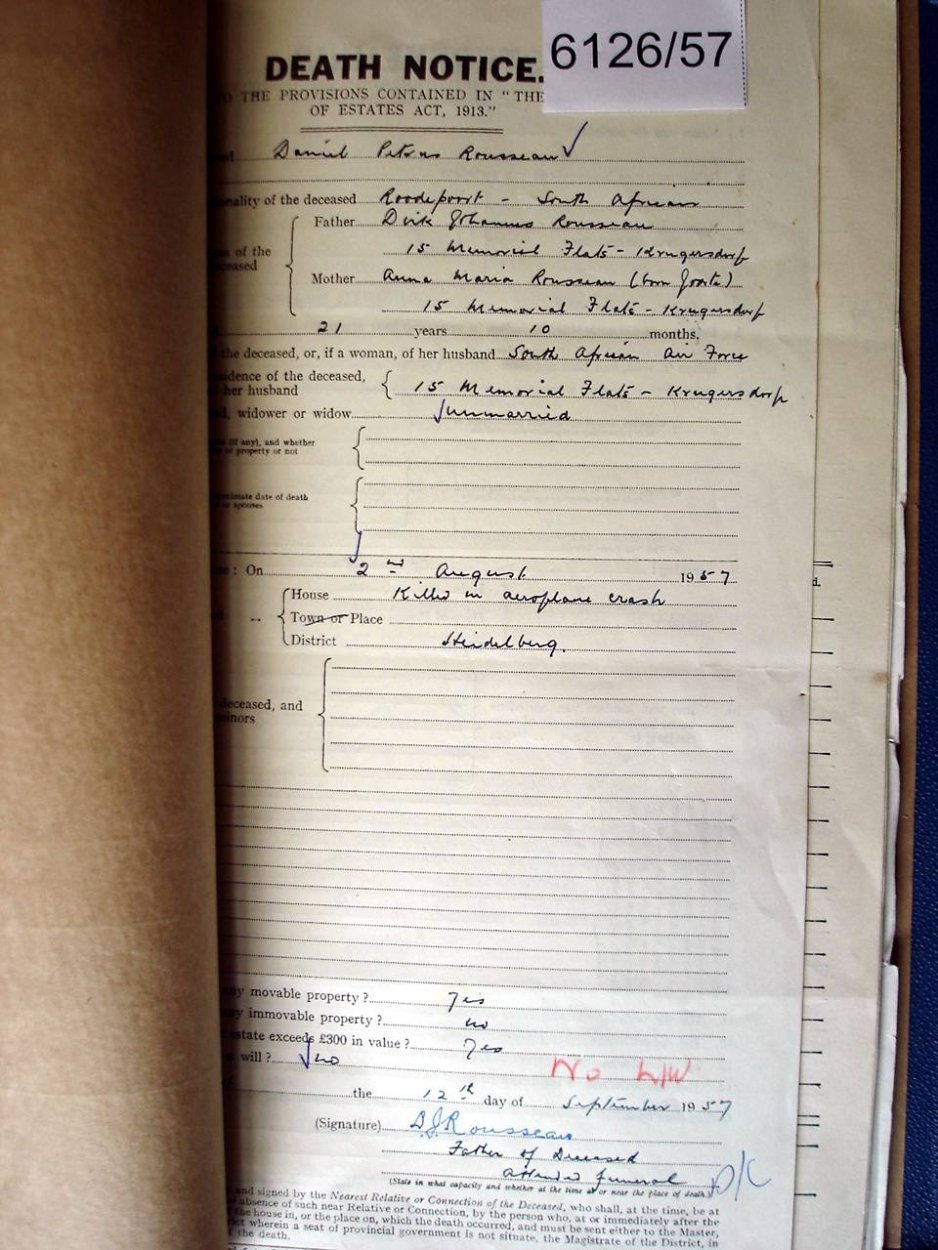 6126/57
DEATH NOTICE.
THE PROVISIONS CONTAINED IN "THE
OF ESTATES ACT, 1913."
Daniel Petrus Rousseau
of the deceased Roodepoort - South African
Father Dirk Johannes Rousseau
of the 15 Memorial Flats - Krugersdorp
Mother Anna Maria Rousseau (born Joosté)
15 Memorial Flats - Krugersdorp
21 years 10 months.
the deceased, or, if a woman, of her husband South African Air Force
of the deceased,
her husband 15 Memorial Flats - Krugersdorp
widower or widow unmarried
(if any), and whether
of property or not
date of death
or spouses
: On 2nd August 1957
House Killed in aeroplane crash
Town or Place
District Heidelberg.
deceased, and
minors
any movable property? Yes
immovable property? no
estate exceeds £300 in value? Yes
will? no
No L/W
the 12th day of September 1957
(Signature) D.J. Rousseau
Father of Deceased
attended funeral
(State in what capacity and whether at the time at or near the place of death.)
and signed by the Nearest Relative or Connection of the Deceased, who shall, at the time, be at
absence of such near Relative or Connection, by the person who, at or immediately after the
the house in, or the place on, which the death occurred, and must be sent either to the Master,
wherein a seat of provincial government is not situate, the Magistrate of the District, in
the death.